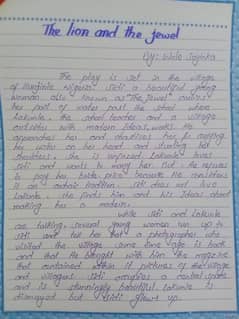 The lion and the jewel
By: Wole Soyinka
The play is set in the village
of Nigeria. Sidi a beautiful young
woman also known as "The Jewel" carries
her pail of water past the school where
Lakunle, the school teacher and a village
outsider with modern ideas, works. He
approaches her and chastises her for carrying
her water on her head and stunting her
shoulders. she is unfazed. Lakunle loves
Sidi and wants to marry her. But he refuses
to pay her bride price because he considers
it an archaic tradition. Sidi does not love
Lakunle. she finds him and his ideas about
making her a modern.
while Sidi and Lakunle
are talking, several young women run up to
Sidi and tell her that a photographer who
visited the village some time ago is back
and that he brought with him the magazine
that contained within it pictures of the village
and villagers. Sidi occupies a central
and is stunningly beautiful. Lakunle is
dismayed but Sidi